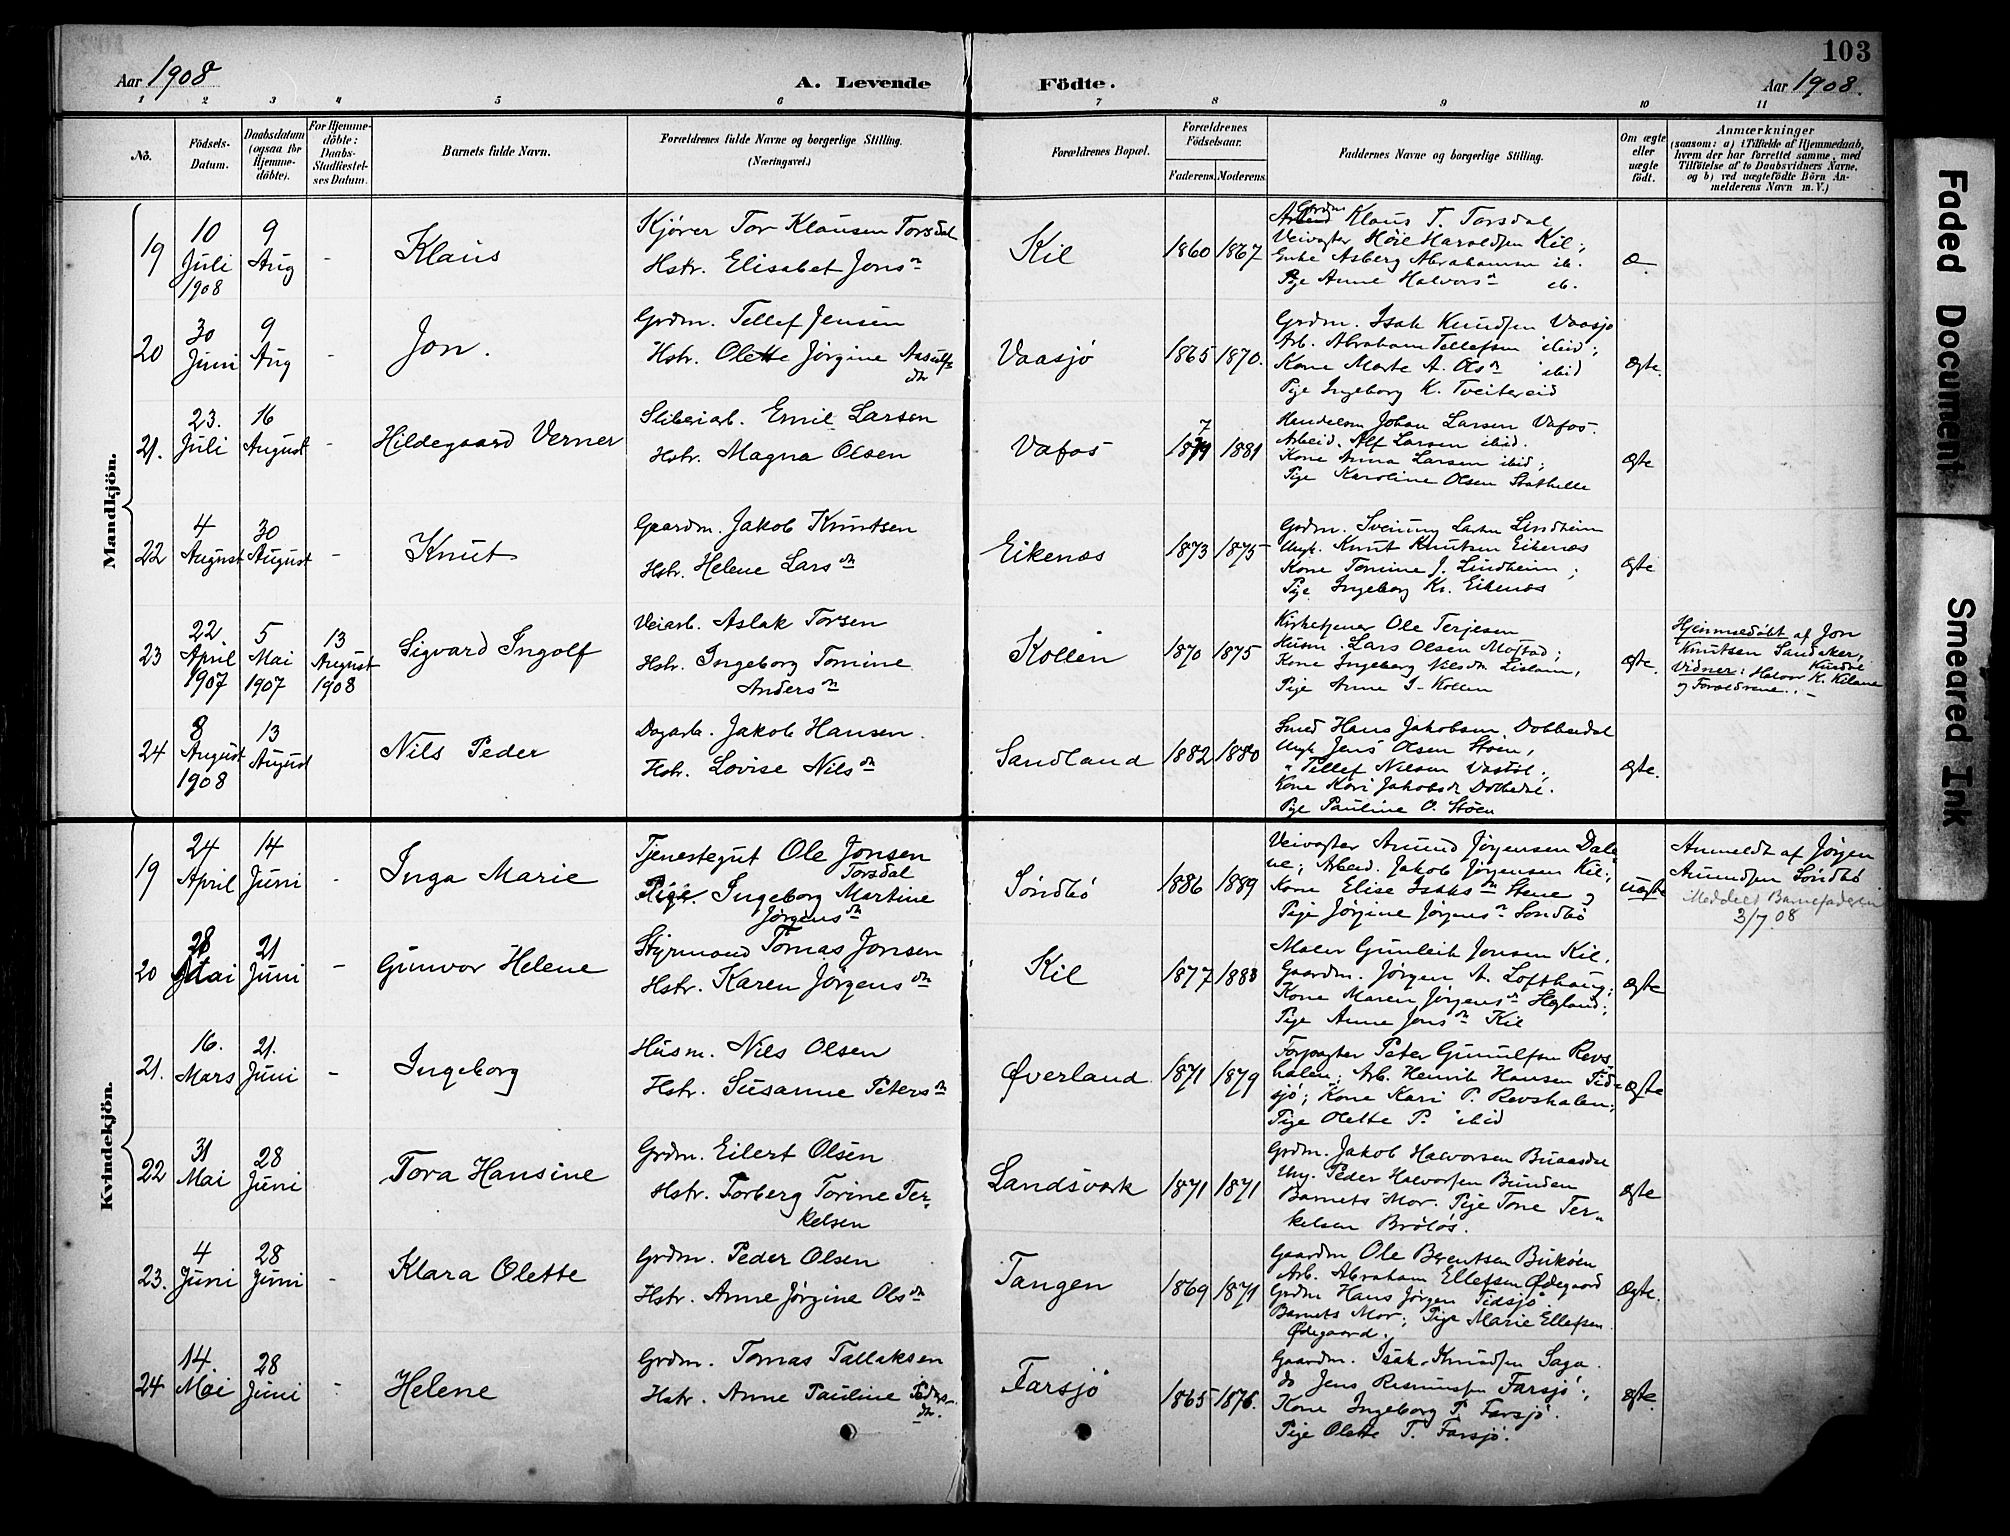 103
Aar 1908
A. Levende
Födte.
Aar 1908.
1 2 3 4 5 6 7 8 9 10 11
Nô.
Födsels-Datum.
Daabsdatum (ogsaa for Hjemme-döbte).
For Hjemme-döbte: Daabs-Stadfæstel-ses Datum.
Barnets fulde Navn.
Forældrenes fulde Navne og borgerlige Stilling. (Næringsvei.)
Forældrenes Bopæl.
Forældrenes Födselsaar.
Faderens. Moderens.
Faddernes Navne og borgerlige Stilling.
Om ægte eller uægte födt.
Anmærkninger
(saasom: a) i Tilfælde af Hjemmedaab, hvem der har forrettet samme, med Tilföielse af to Daabsvidners Navne, og b) ved uægtefödte Börn An-melderens Navn m. V.)
Mandkjön.
19
10 Juli 1908
9 Aug
-
Klaus
Kjörer Tor Klausen Torsdal
Hstr. Elisabet Jonsn
Kil
1860 1867
Grdm Klaus T. Torsdal
Veivogter Höie Haraldsen Kil;
Enke Asberg Abrahamsen ib.
Pige Anne Halvorsn ib.
æ.
20
30 Juni
9 Aug
-
Jon.
Grdm. Tellef Jensen
Hstr. Olette Jørgine Aasulfs dtr
Vaasjø
1865 1870.
Grdm. Isak Knudsen Vaasjø
Arb. Abraham Tellefsen ibid;
Kone Marte A. Olsn ibid
Pige Ingeborg K. Tveitereid
ægte.
21.
23. Juli
16 August
-
Hildegaard Verner
Sliberiarb. Emil Larsen
Hstr. Magna Olsen
Vafos
1879 1881
Handelsm Johan Larsen Vafos.
Arbeid. Alf Larsen ibid.
Kone Anna Larsen ibid;
Pige Karoline Olsen Stathelle
ægte
22
4 August
30 August
-
Knut
Gaardm. Jakob Knutsen
Hstr. Helene Larsdtr
Eikenæs
1873 1875
Grdm. Sveinung Larsen Lindheim
Ungk. Knut Knutsen Eikenæs
Kone Tomine J. Lindheim;
Pige Ingeborg Kn. Eikenæs
ægte
23
22. April 1907
5 Mai 1907
13 August 1908
Sigvard Ingolf
Veiarb. Aslak Torsen
Hstr. Ingeborg Tomine
Andersn
Kollen
1870 1875
Kirketjener Ole Terjesen
Husm. Lars Olsen Mostad;
Kone Ingeborg Nilsdtr Lislann,
Pige Anne I- Kollen
ægte.
Hjemmedöbt af Jon
Knutsen Sandaker,
Vidner: Halvor K. Kilane
og Forældrene. -
24
8 August 1908
13 August
Nils Peder
Dagarb. Jakob Hansen.
Hstr. Lovise Nilsdtr
Sandland
1882 1880
Smed Hans Jakobsen, Dobbedal
Ungk Jens Olsen Stoen,
" Tellef Nilsen Vastöl;
Kone Kari Jakobsdtr Dobbedal.
Pige Pauline O. Støen
ægte.
Kvindekjön.
19
24 April
14 Juni
-
Inga Marie
Tjenestegut Ole Jonsen
Torsdal
Pige. Ingeborg Martine
Jørgensdtr
Söndbö
1886 1889
Veivogter Amund Jørgensen Dale
ne; Arbeid. Jakob Jørgensen Kil;
Kone Elise Isaksn Stene og
Pige Jörgine Jörgensn Sondbö
uægte
Anmeldt af Jørgen
Amundsen Söndbö
Meddelt Barnefaderen
3/7 08
20
28 Mai
21 Juni
-
Gunvor Helene
Styrmand Tomas Jonsen
Hstr. Karen Jörgensdtr
Kil
1877 1883
Maler Gunleik Jonsen Kil,
Gaardm. Jörgen A. Lofthaug;
Kone Maren Jörgensn Hegland;
Pige Anne Jonsdtr Kil
ægte
21.
16. Mars
21. Juni
-
Ingeborg
Husm. Nils Olsen
Hstr. Susanne Petersn
Øverland
1871 1879
Forpagter Peter Gunulfsen Revs
halen; Arb. Henrik Hansen Tid-
sjö; Kone Kari P. Revshalen;
Pige Olette P. ibid
ægte
22
31 Mai
28 Juni
Tora Hansine
Grdm. Eilert Olsen
Hstr. Torberg Torine Ter-
kelsen
Landsværk
1871 1871
Grdm. Jakob Halvorsen
Ung. Peder Halvorsen Bunden
Barnets Mor. Pige Tone Ter-
kelsen Bråtøs.
ægte
23.
4 Juni
28 Juni
-
Klara Olette
Grdm. Peder Olsen
Hstr. Anne Jørgine Olsdtr
Tangen
1869 1871
Gaardm Ole Berentsen Bukøen
Arb. Abraham Ellefsen Ødegaard
Grdm Hans Jørgen Tidsjö.
Barnets Mor; Pige Marie Ellefsen
Ødegaard.
ægte.
24
14. Mai
28 Juni
-
Helene
Grdm. Tomas Tallaksen
Hstr. Anne Pauline Peders-
dtr.
Farsjø
1865 1876.
Gaardm. Isak Knudsen Saga.
do Jens Rasmussen Farsjö;
Kone Ingeborg T. Farsjö.
Pige Olette T. Farsjö.
ægte.
Faded Document
Smeared Ink